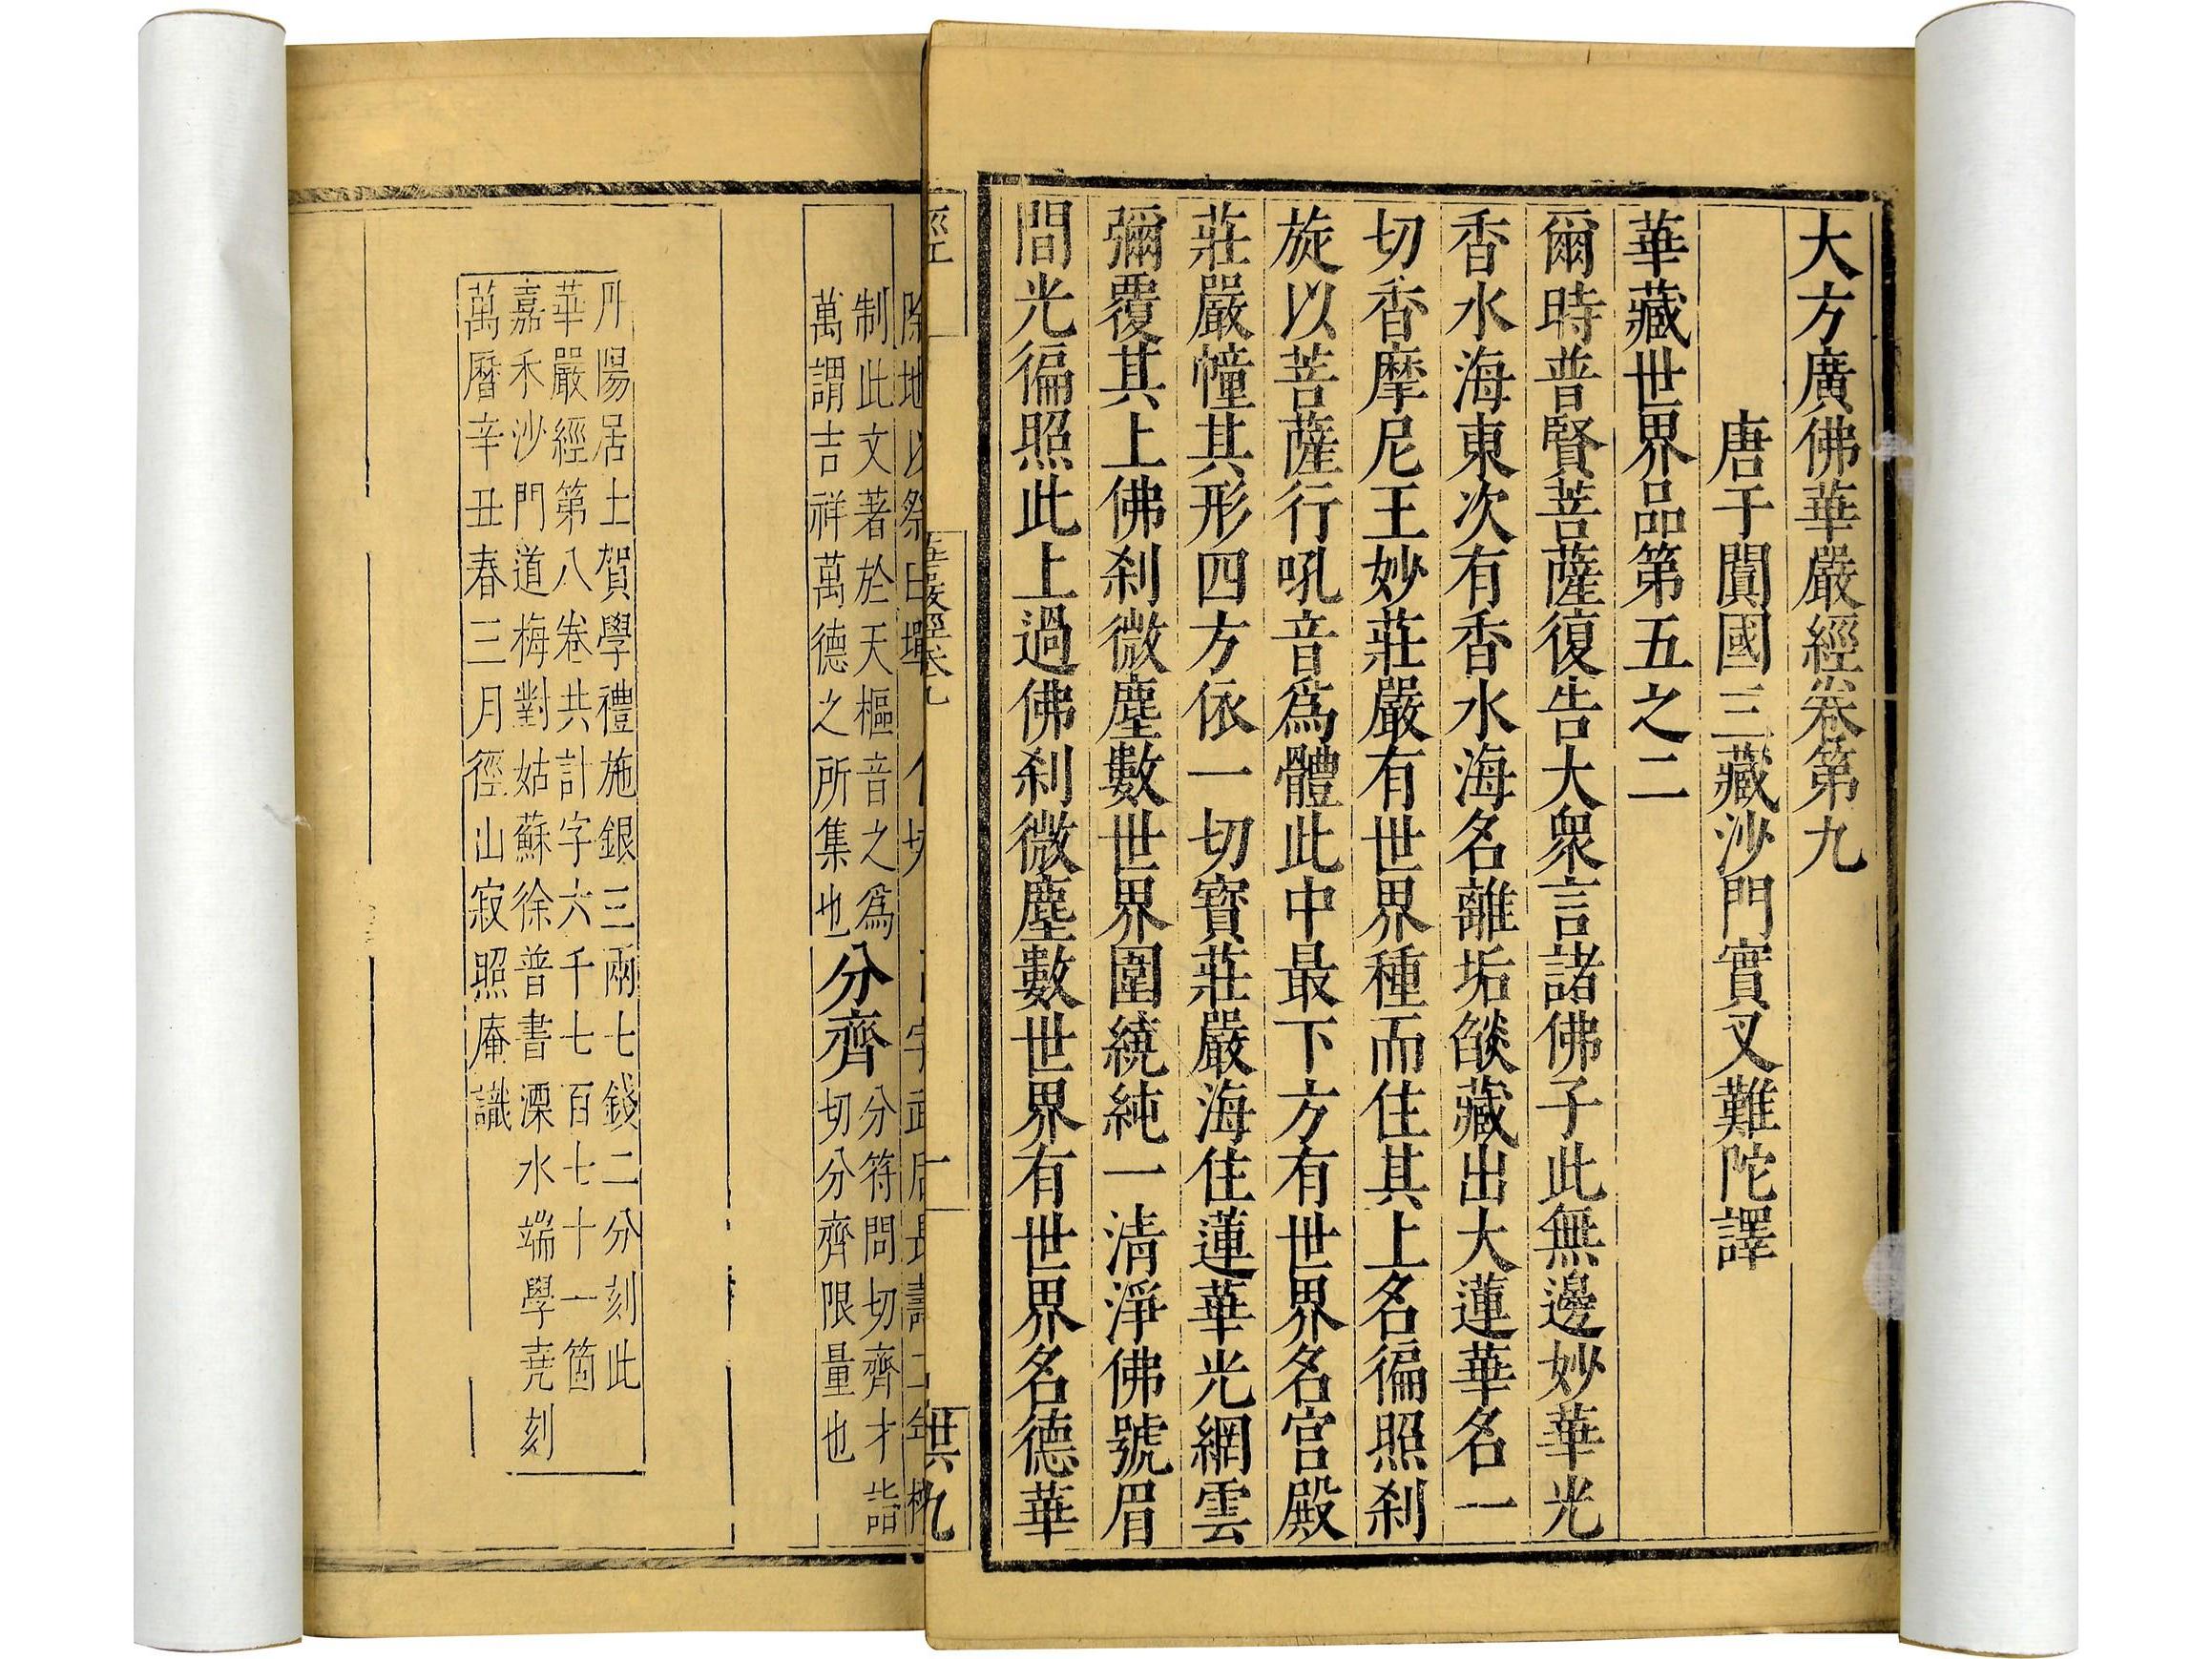 大方廣佛華嚴經卷第九
唐于闐國三藏沙門實叉難陀譯
華藏世界品第五之二
爾時普賢菩薩復告大衆言諸佛子此無邊妙華光
香水海東次有香水海名離垢燄藏出大蓮華名一
切香摩尼王妙莊嚴有世界種而住其上名徧照剎
旋以菩薩行吼音爲體此中最下方有世界名宮殿
莊嚴幢其形四方依一切寶莊嚴海住蓮華光網雲
彌覆其上佛剎微塵數世界圍繞純一清淨佛號眉
間光徧照此上過佛剎微塵數世界有世界名德華
經
華嚴經卷九
一
世九
制此文著於天樞音之爲
萬謂吉祥萬德之所集也
分齊
分符問切齊才詣
切分齊限量也
丹陽居士賀學禮施銀三兩七錢二分刻此
華嚴經第八卷共計字六千七百七十一箇
嘉禾沙門道梅對姑蘇徐普書溧水端學堯刻
萬曆辛丑春三月徑山寂照庵識